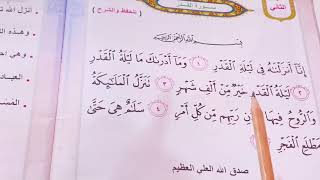 الثاني
سورة القدر
(للحفظ والشرح)
بِسْمِ اللَّهِ الرَّحْمَٰنِ الرَّحِيمِ
إِنَّا أَنزَلْنَٰهُ فِي لَيْلَةِ الْقَدْرِ ١ وَمَا أَدْرَىٰكَ مَا لَيْلَةُ الْقَدْرِ
٢ لَيْلَةُ الْقَدْرِ خَيْرٌ مِّنْ أَلْفِ شَهْرٍ ٣ تَنَزَّلُ الْمَلَٰٓئِكَةُ
وَالرُّوحُ فِيهَا رَبِّهِم مِّن كُلِّ أَمْرٍ ٤ سَلَٰمٌ هِيَ حَتَّىٰ
مَطْلَعِ الْفَجْرِ
صدق الله العلي العظيم
أنزل الله
وهذه
وهي أح
العباد